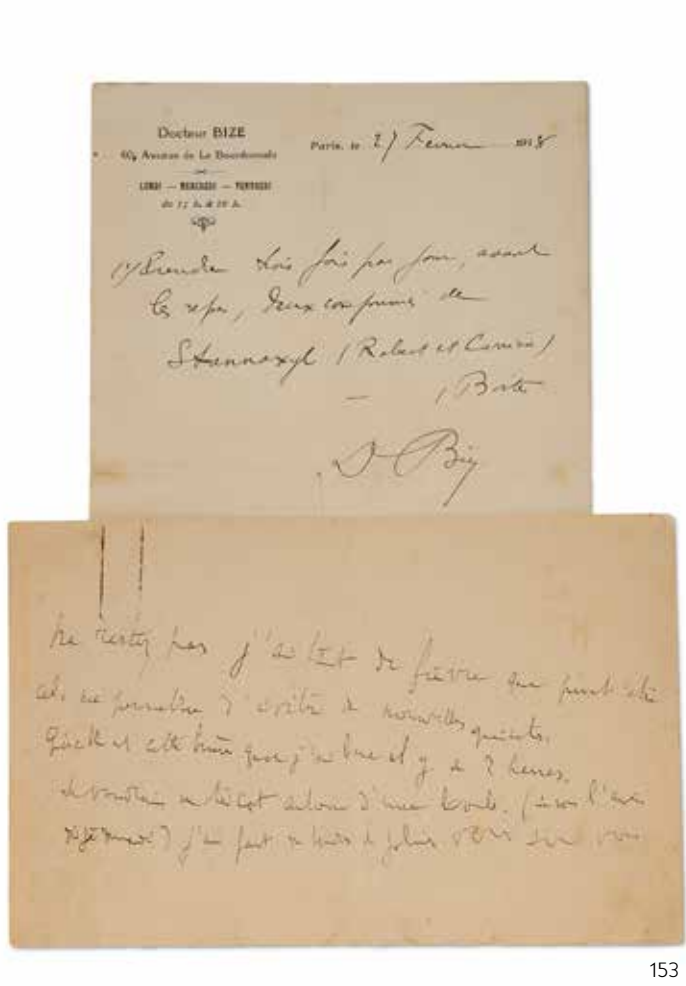 Docteur BIZE
60, Avenue de La Bourdonnais
LUNDI — MERCREDI — VENDREDI
de 15 h. à 16 h.
Paris, le 27 Février 1918
1) Prendre trois fois par jour, avant
les repas, deux comprimés de
Stannoxyl (Robert et Carrière)
1 Boîte
Dr Bize
Ne restez pas j'ai tant de fièvre que peut être
cela me permettra d'éviter de nouvelles quintes.
Quelle est cette bière que j'ai bue il y a 2 heures.
Je voudrais un tricot autour d'une boule. (
) j'ai fait de plus vers sur vous
153